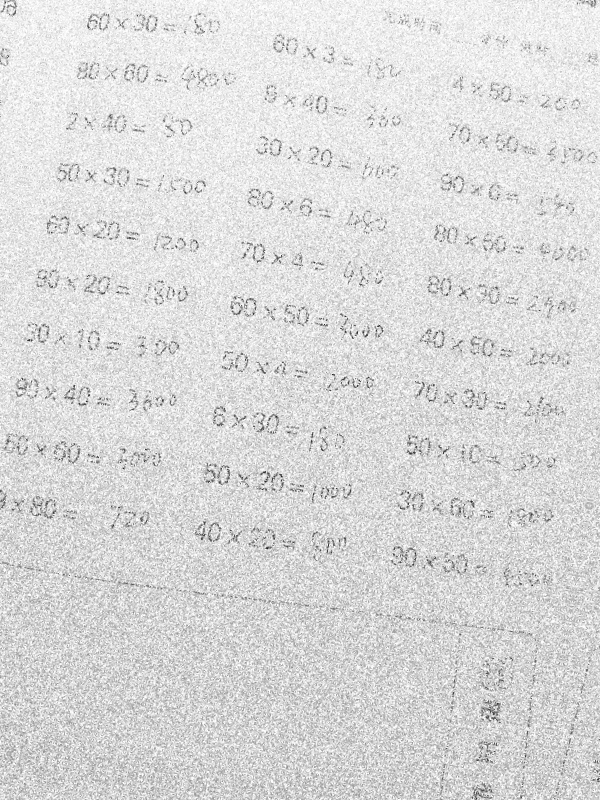 60×30=180
80×60=4800
2×40=80
50×30=1500
60×20=1200
90×20=1800
30×10=300
90×40=3600
60×50=3000
9×80=720
60×3=180
9×40=360
30×20=600
80×6=480
70×4=480
60×50=3000
50×4=2000
6×30=180
50×20=1000
40×20=800
完成时间
4×50=200
70×50=3500
90×6=540
80×50=4000
80×30=2400
40×50=2000
70×30=2100
50×10=500
30×60=1800
90×50=